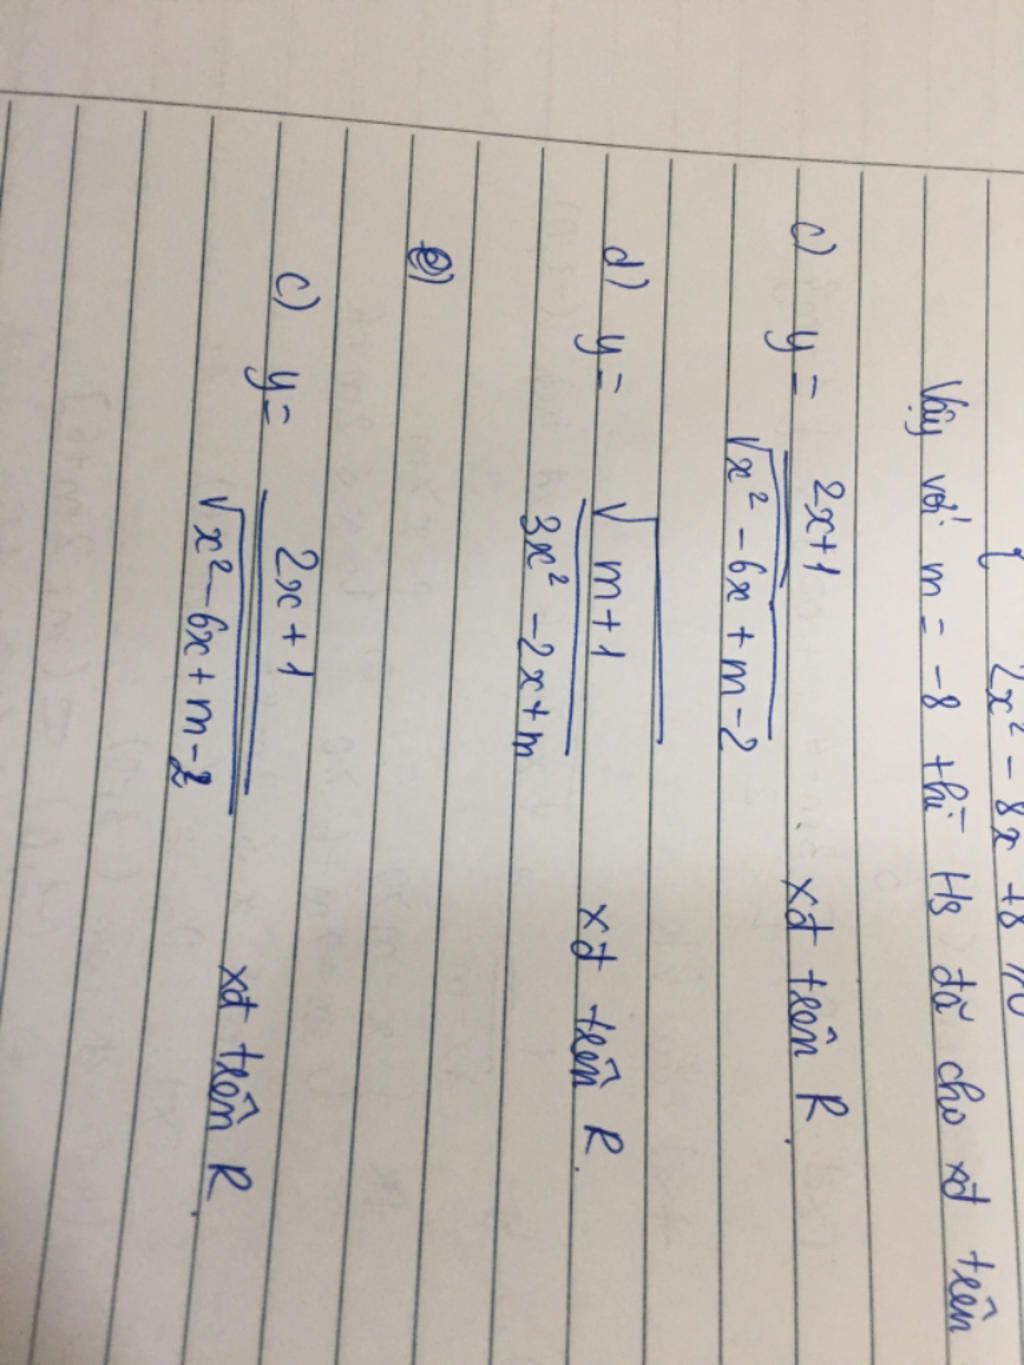 2x² - 8x + 8
Vậy với m = -8 thì Hs đã cho xđ trên
c) y = 2x+1 / √(x² - 6x + m - 2) xđ trên R.
d) y = √(m+1) / 3x² - 2x + m xđ trên R.
e)
c) y = 2x + 1 / √(x² - 6x + m - 2) xđ trên R.